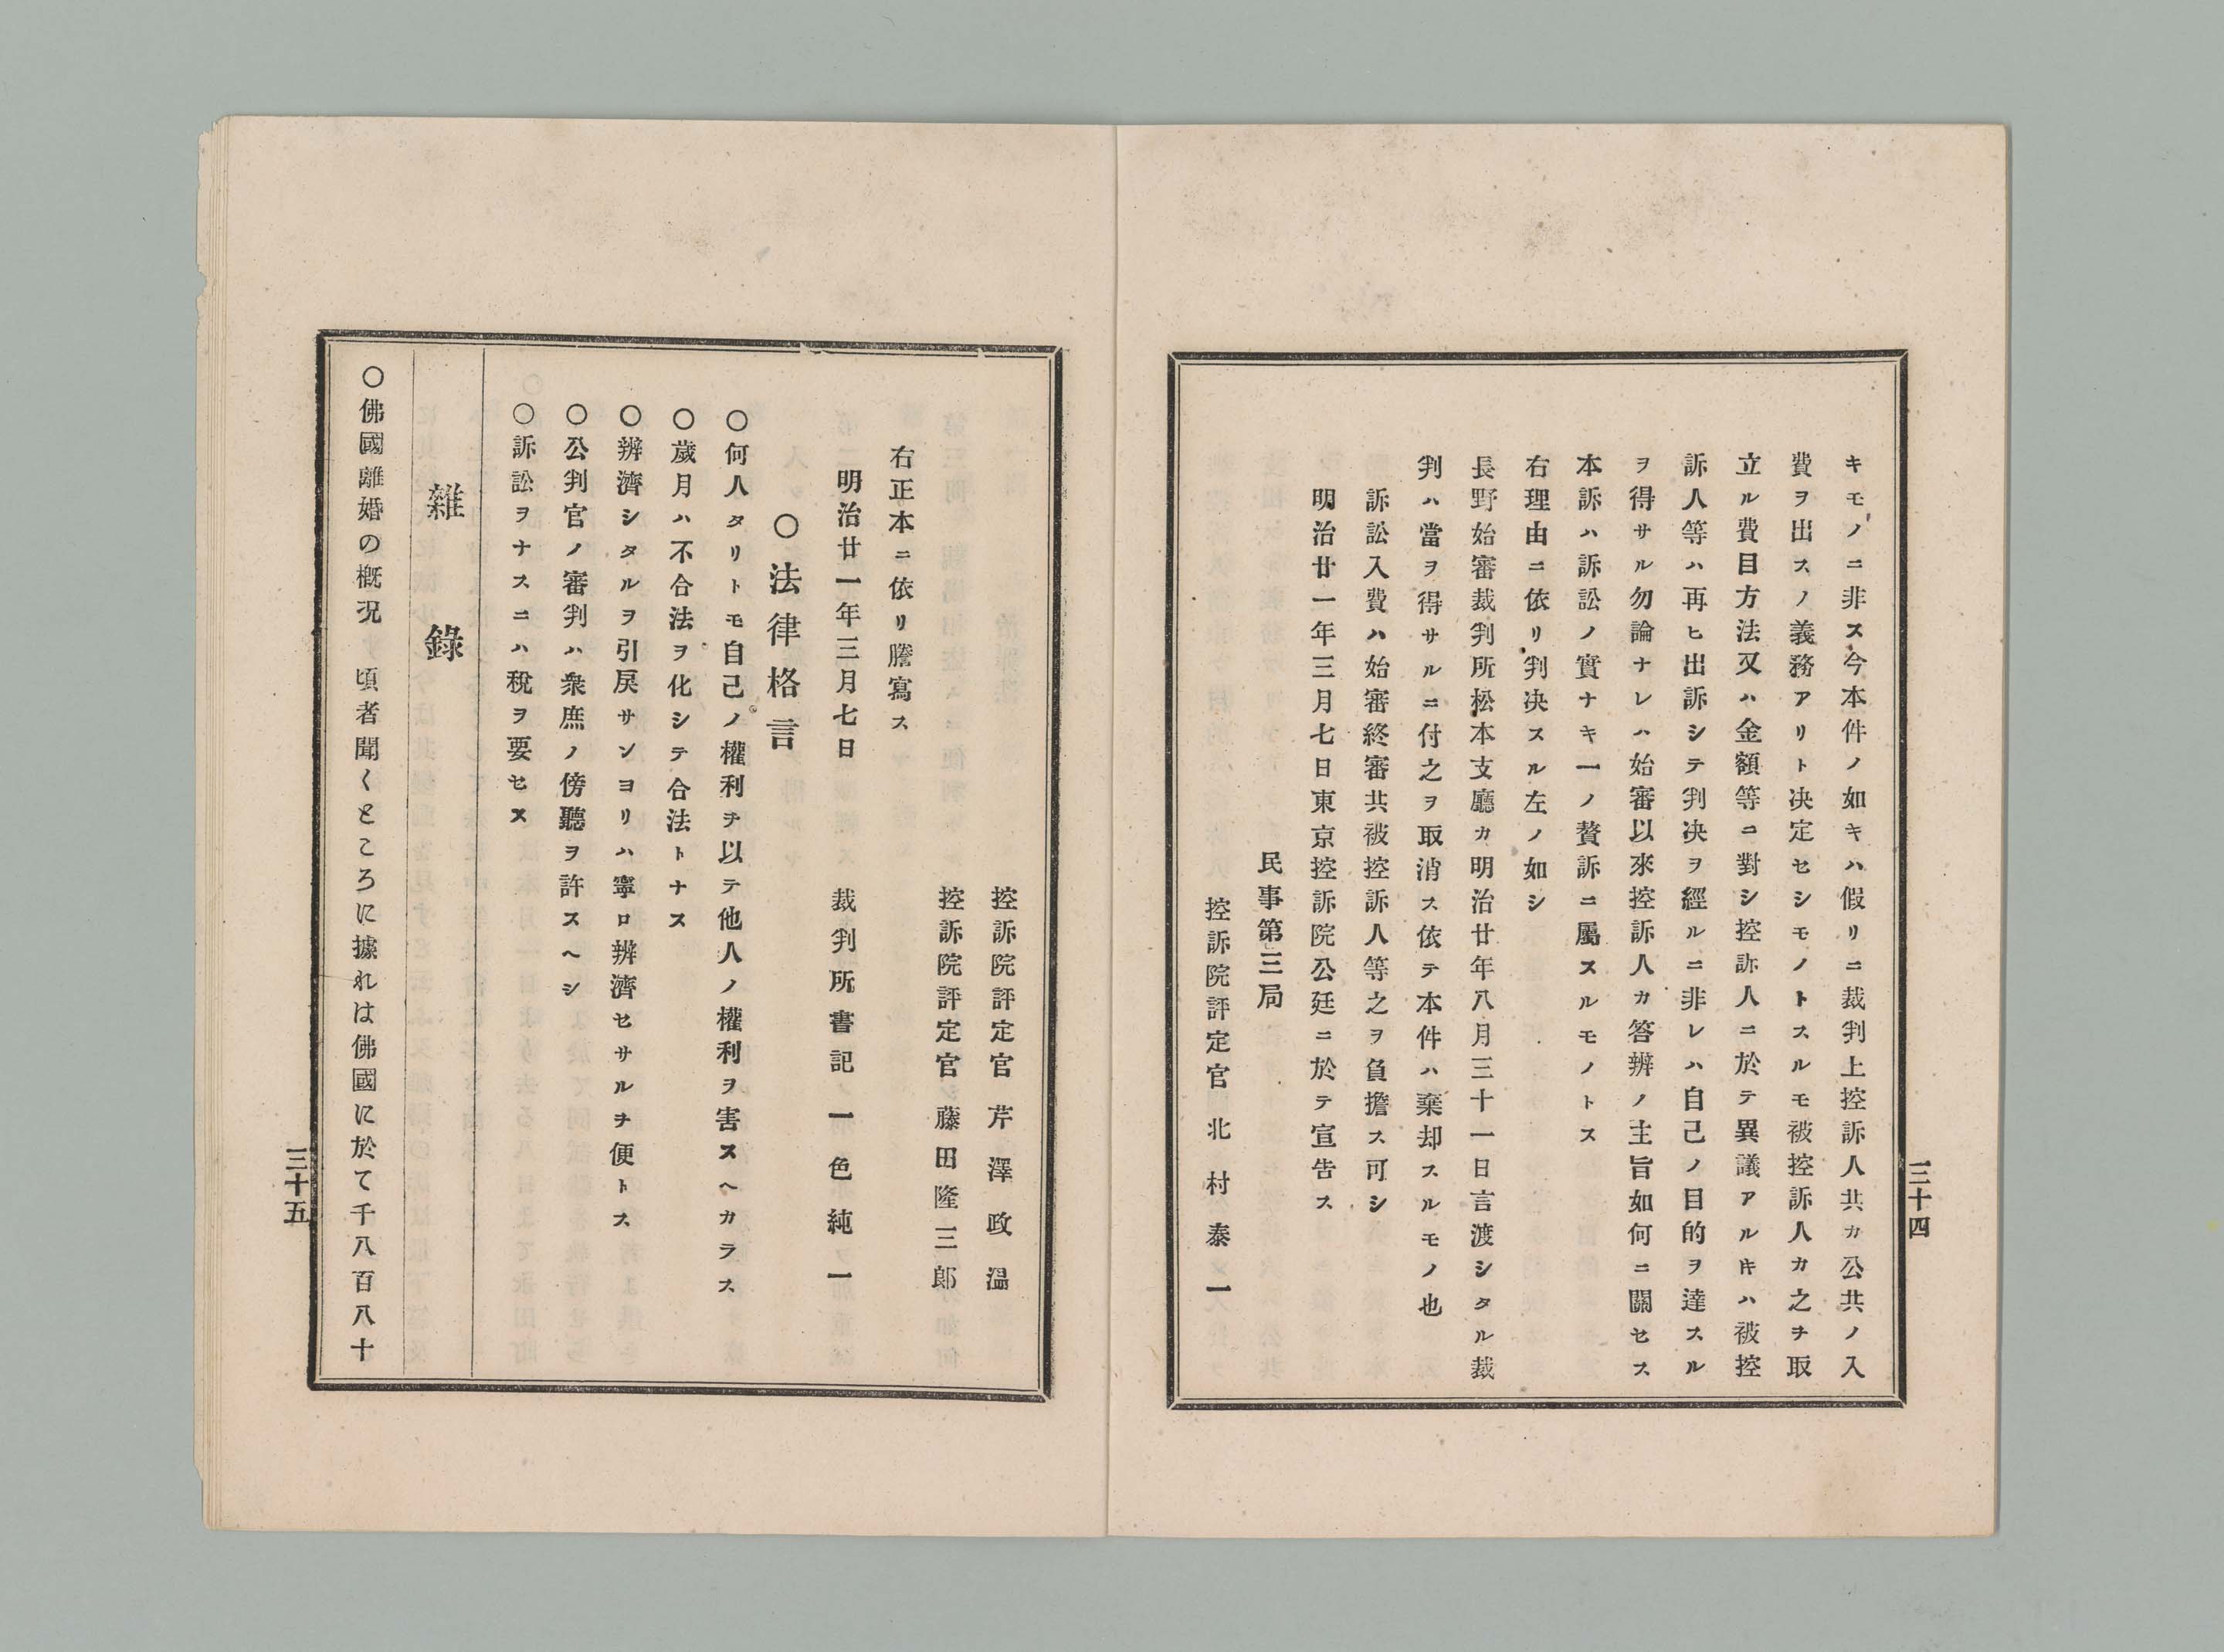 三十四
キモノニ非ス今本件ノ如キハ假リニ裁判上控訴人共カ公共ノ入
費ヲ出スノ義務アリト决定セシモノトスルモ被控訴人カ之ヲ取
立ル費目方法又ハ金額等ニ對シ控訴人ニ於テ異議アルキハ被控
訴人等ハ再ヒ出訴シテ判决ヲ經ルニ非レハ自己ノ目的ヲ達スル
ヲ得サル勿論ナレハ始審以來控訴人カ答辨ノ主旨如何ニ關セス
本訴ハ訴訟ノ實ナキ一ノ贅訴ニ屬スルモノトス
右理由ニ依リ判决スル左ノ如シ
長野始審裁判所松本支廳カ明治廿年八月三十一日言渡シタル裁
判ハ當ヲ得サルニ付之ヲ取消ス依テ本件ハ棄却スルモノ也
訴訟入費ハ始審終審共被控訴人等之ヲ負擔ス可シ
明治廿一年三月七日東京控訴院公廷ニ於テ宣告ス
民事第三局
控訴院評定官 北村泰一
控訴院評定官 芹澤政溫
控訴院評定官 藤田隆三郎
右正本ニ依リ謄寫ス
明治廿一年三月七日 裁判所書記 一色純一
○法律格言
○何人タリトモ自己ノ權利ヲ以テ他人ノ權利ヲ害スヘカラス
○歲月ハ不合法ヲ化シテ合法トナス
○辨濟シタルヲ引戾サンヨリハ寧ロ辨濟セサルヲ便トス
○公判官ノ審判ハ衆庶ノ傍聽ヲ許スヘシ
○訴訟ヲナスニハ稅ヲ要セス
雜錄
○佛國離婚の概況 頃者聞くところに據れは佛國に於て千八百八十
三十五